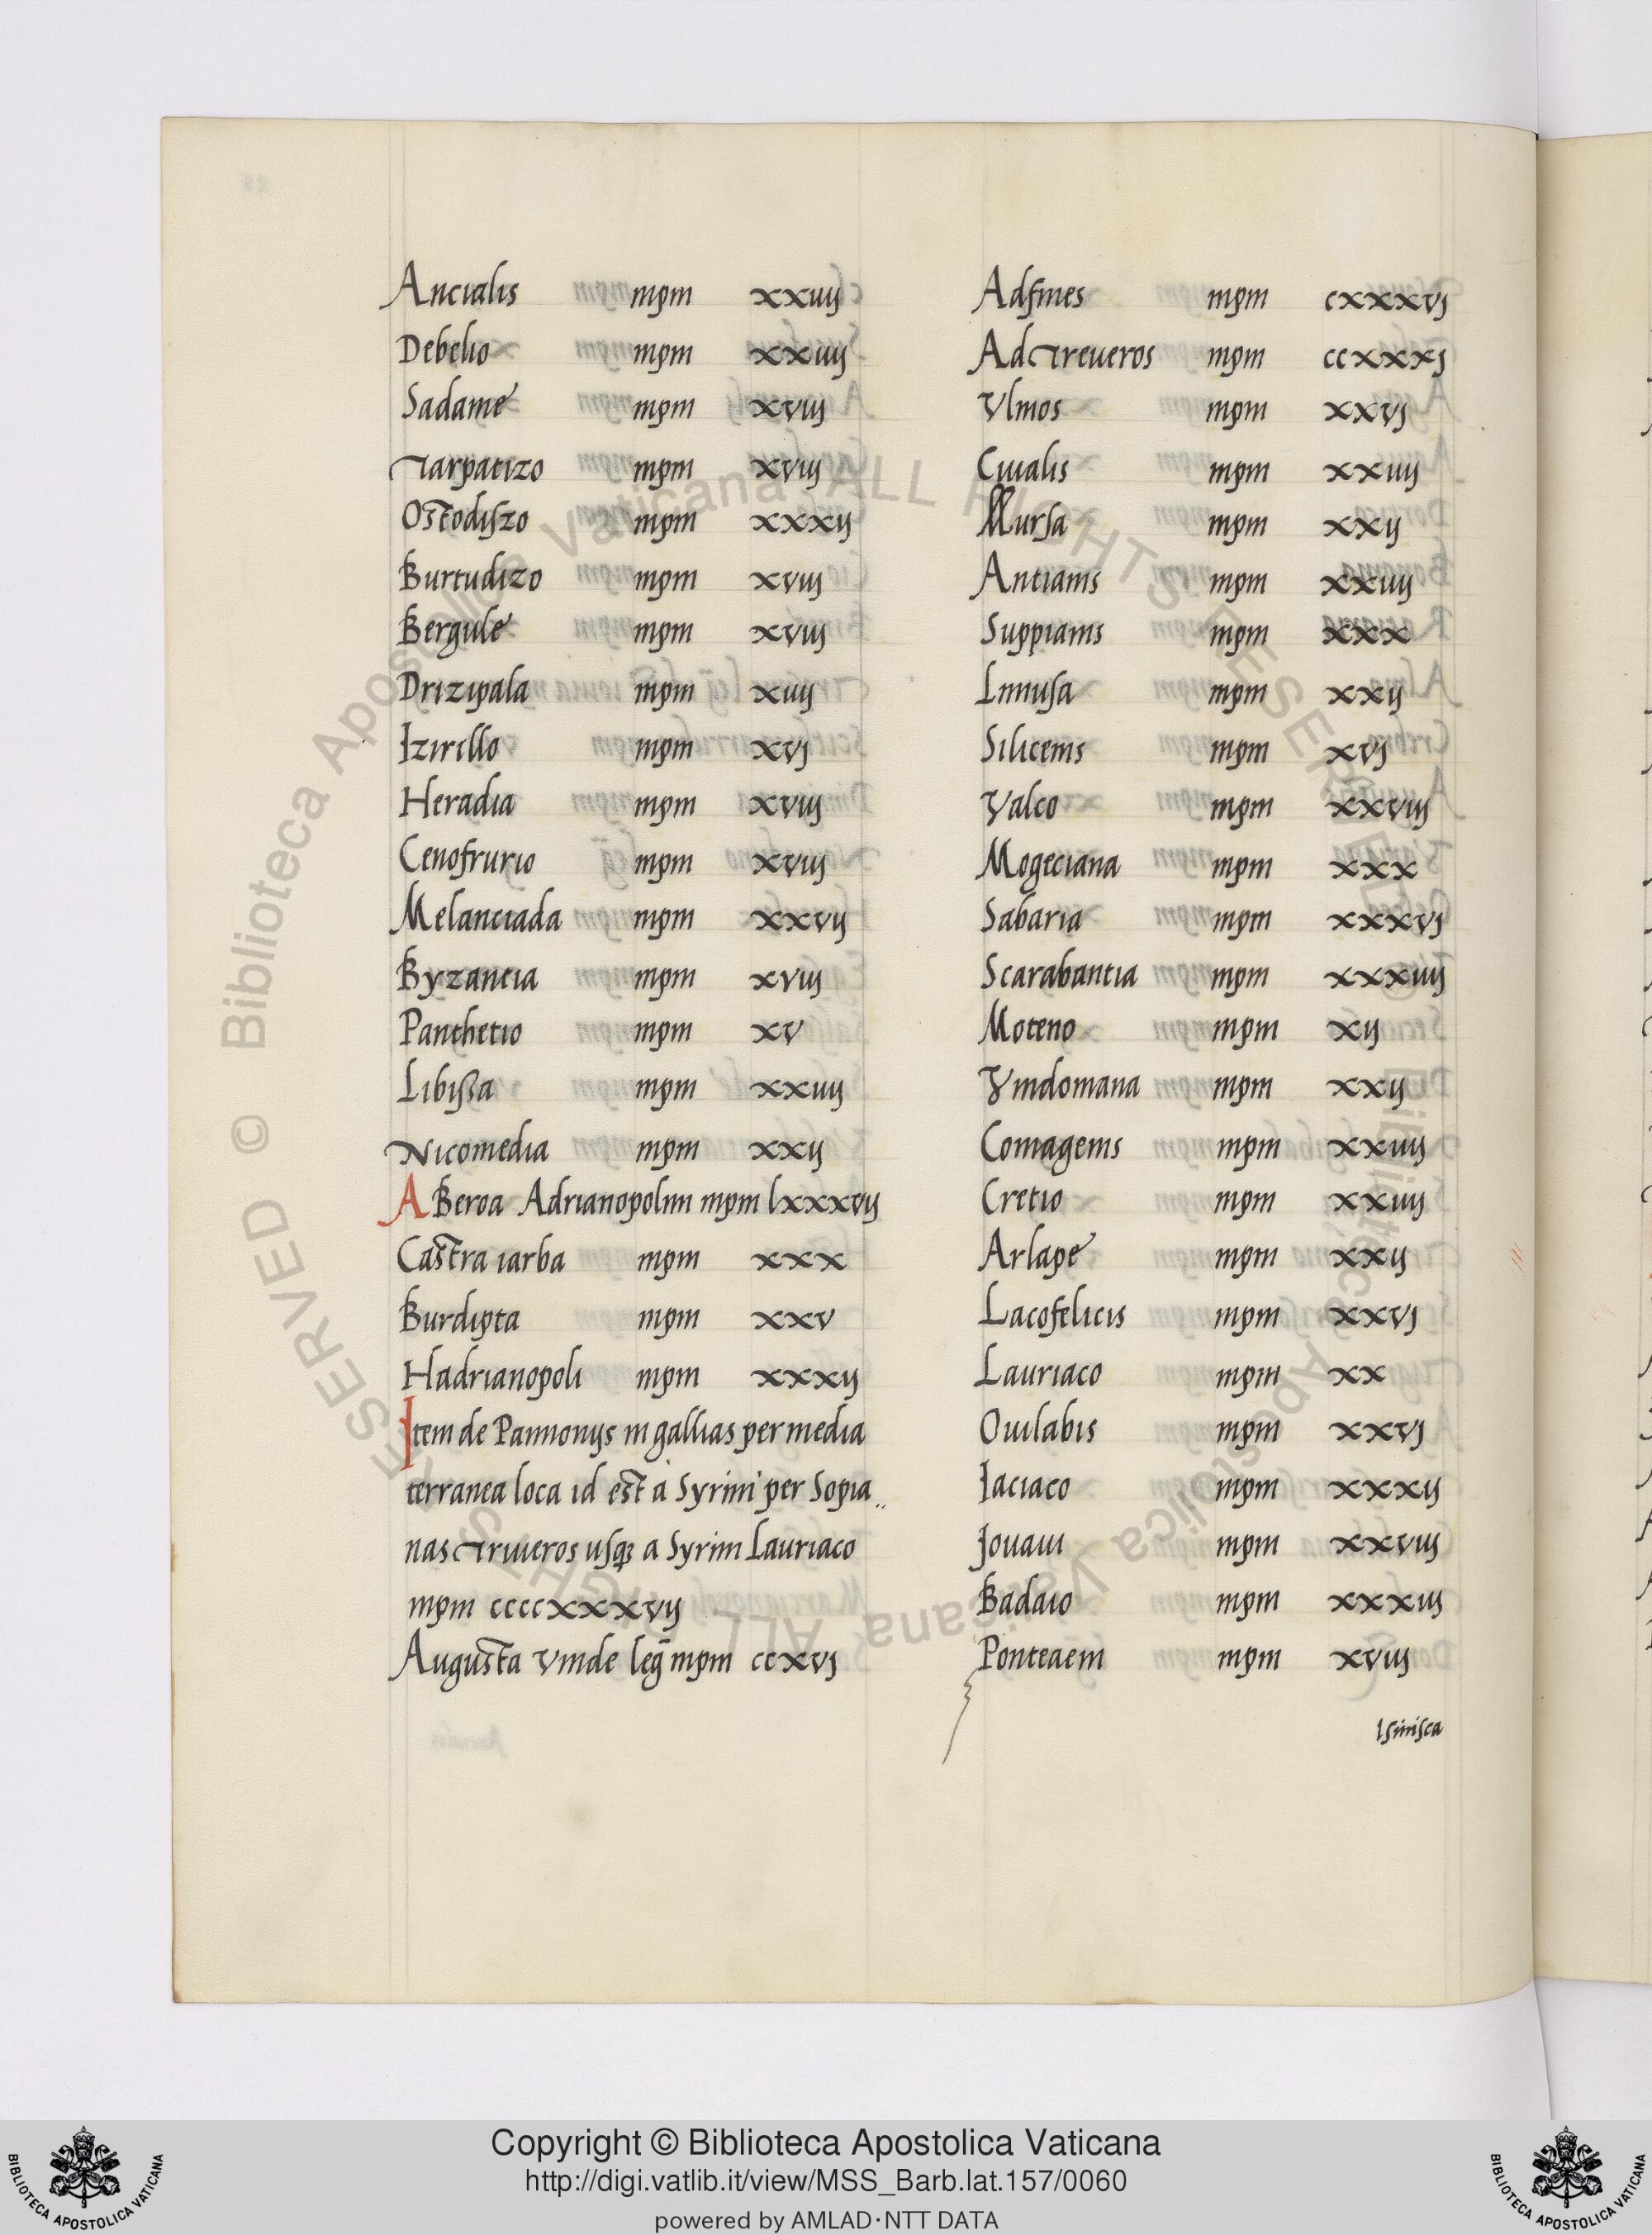 Ancialis mpm xxiiij
Debelio mpm xxiiij
Sadame mpm xviij
Tarpatizo mpm xviij
Ostodiszo mpm xxxij
Burtudizo mpm xviij
Bergule mpm xviij
Drizipala mpm xiiij
Izirillo mpm xvj
Heradia mpm xviij
Cenofrurio mpm xviij
Melantiada mpm xxvij
Byzantia mpm xviij
Panthetio mpm xv
Libissa mpm xxiiij
Nicomedia mpm xxij
A Beroa Adrianopolim mpm lxxxvij
Castra iarba mpm xxx
Burdipta mpm xxv
Hadrianopoli mpm xxxij
Item de Pannonijs in gallias per media
terranea loca id est a Syrini per Sopia
nas Triueros usq; a Syrini Lauriaco
mpm ccccxxxvij
Augusta vinde leg mpm ccxvj
Adfines mpm cxxxvj
AdTreueros mpm ccxxxj
Vlmos mpm xxvj
Ciuialis mpm xxiiij
Mursa mpm xxij
Antianis mpm xxiiij
Suppianis mpm xxx
Limusa mpm xxij
Silicenis mpm xvj
Valco mpm xxviij
Mogeciana mpm xxx
Sabaria mpm xxxvj
Scarabantia mpm xxxiiij
Moteno mpm xij
Vindomana mpm xxij
Comagenis mpm xxiiij
Cretio mpm xxiiij
Arlape mpm xxij
Lacofelicis mpm xxvj
Lauriaco mpm xx
Ouilabis mpm xxvj
Iaciaco mpm xxxij
Iouaui mpm xxviij
Badaio mpm xxxiij
Ponteaeni mpm xviij
Isinisca
© Biblioteca Apostolica Vaticana ALL RIGHTS RESERVED
© Biblioteca Apostolica Vaticana ALL RIGHTS RESERVED
Copyright © Biblioteca Apostolica Vaticana
http://digi.vatlib.it/view/MSS_Barb.lat.157/0060
powered by AMLAD·NTT DATA
BIBLIOTECA APOSTOLICA VATICANA
BIBLIOTECA APOSTOLICA VATICANA